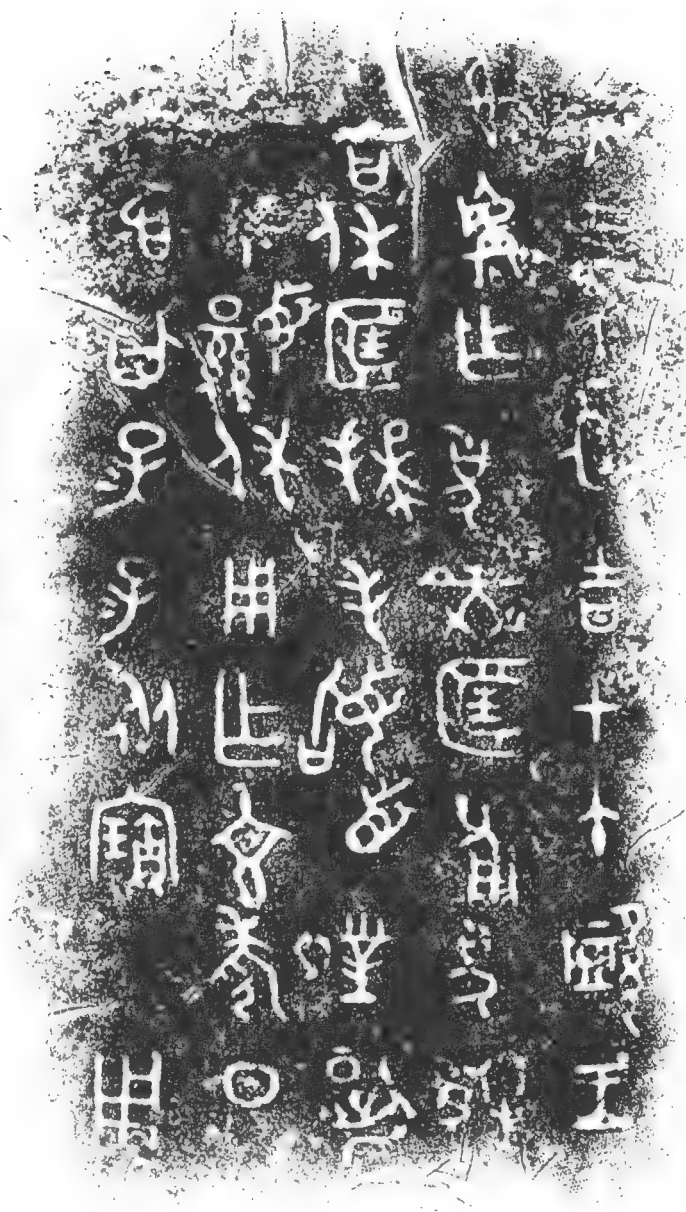 隹四月初吉甲午懿王
才射廬乍象匡甫象樂二
王曰休匡拜手稽首對揚天
子不顯休用乍文考日
丁寶彝其子子孫孫永寶用